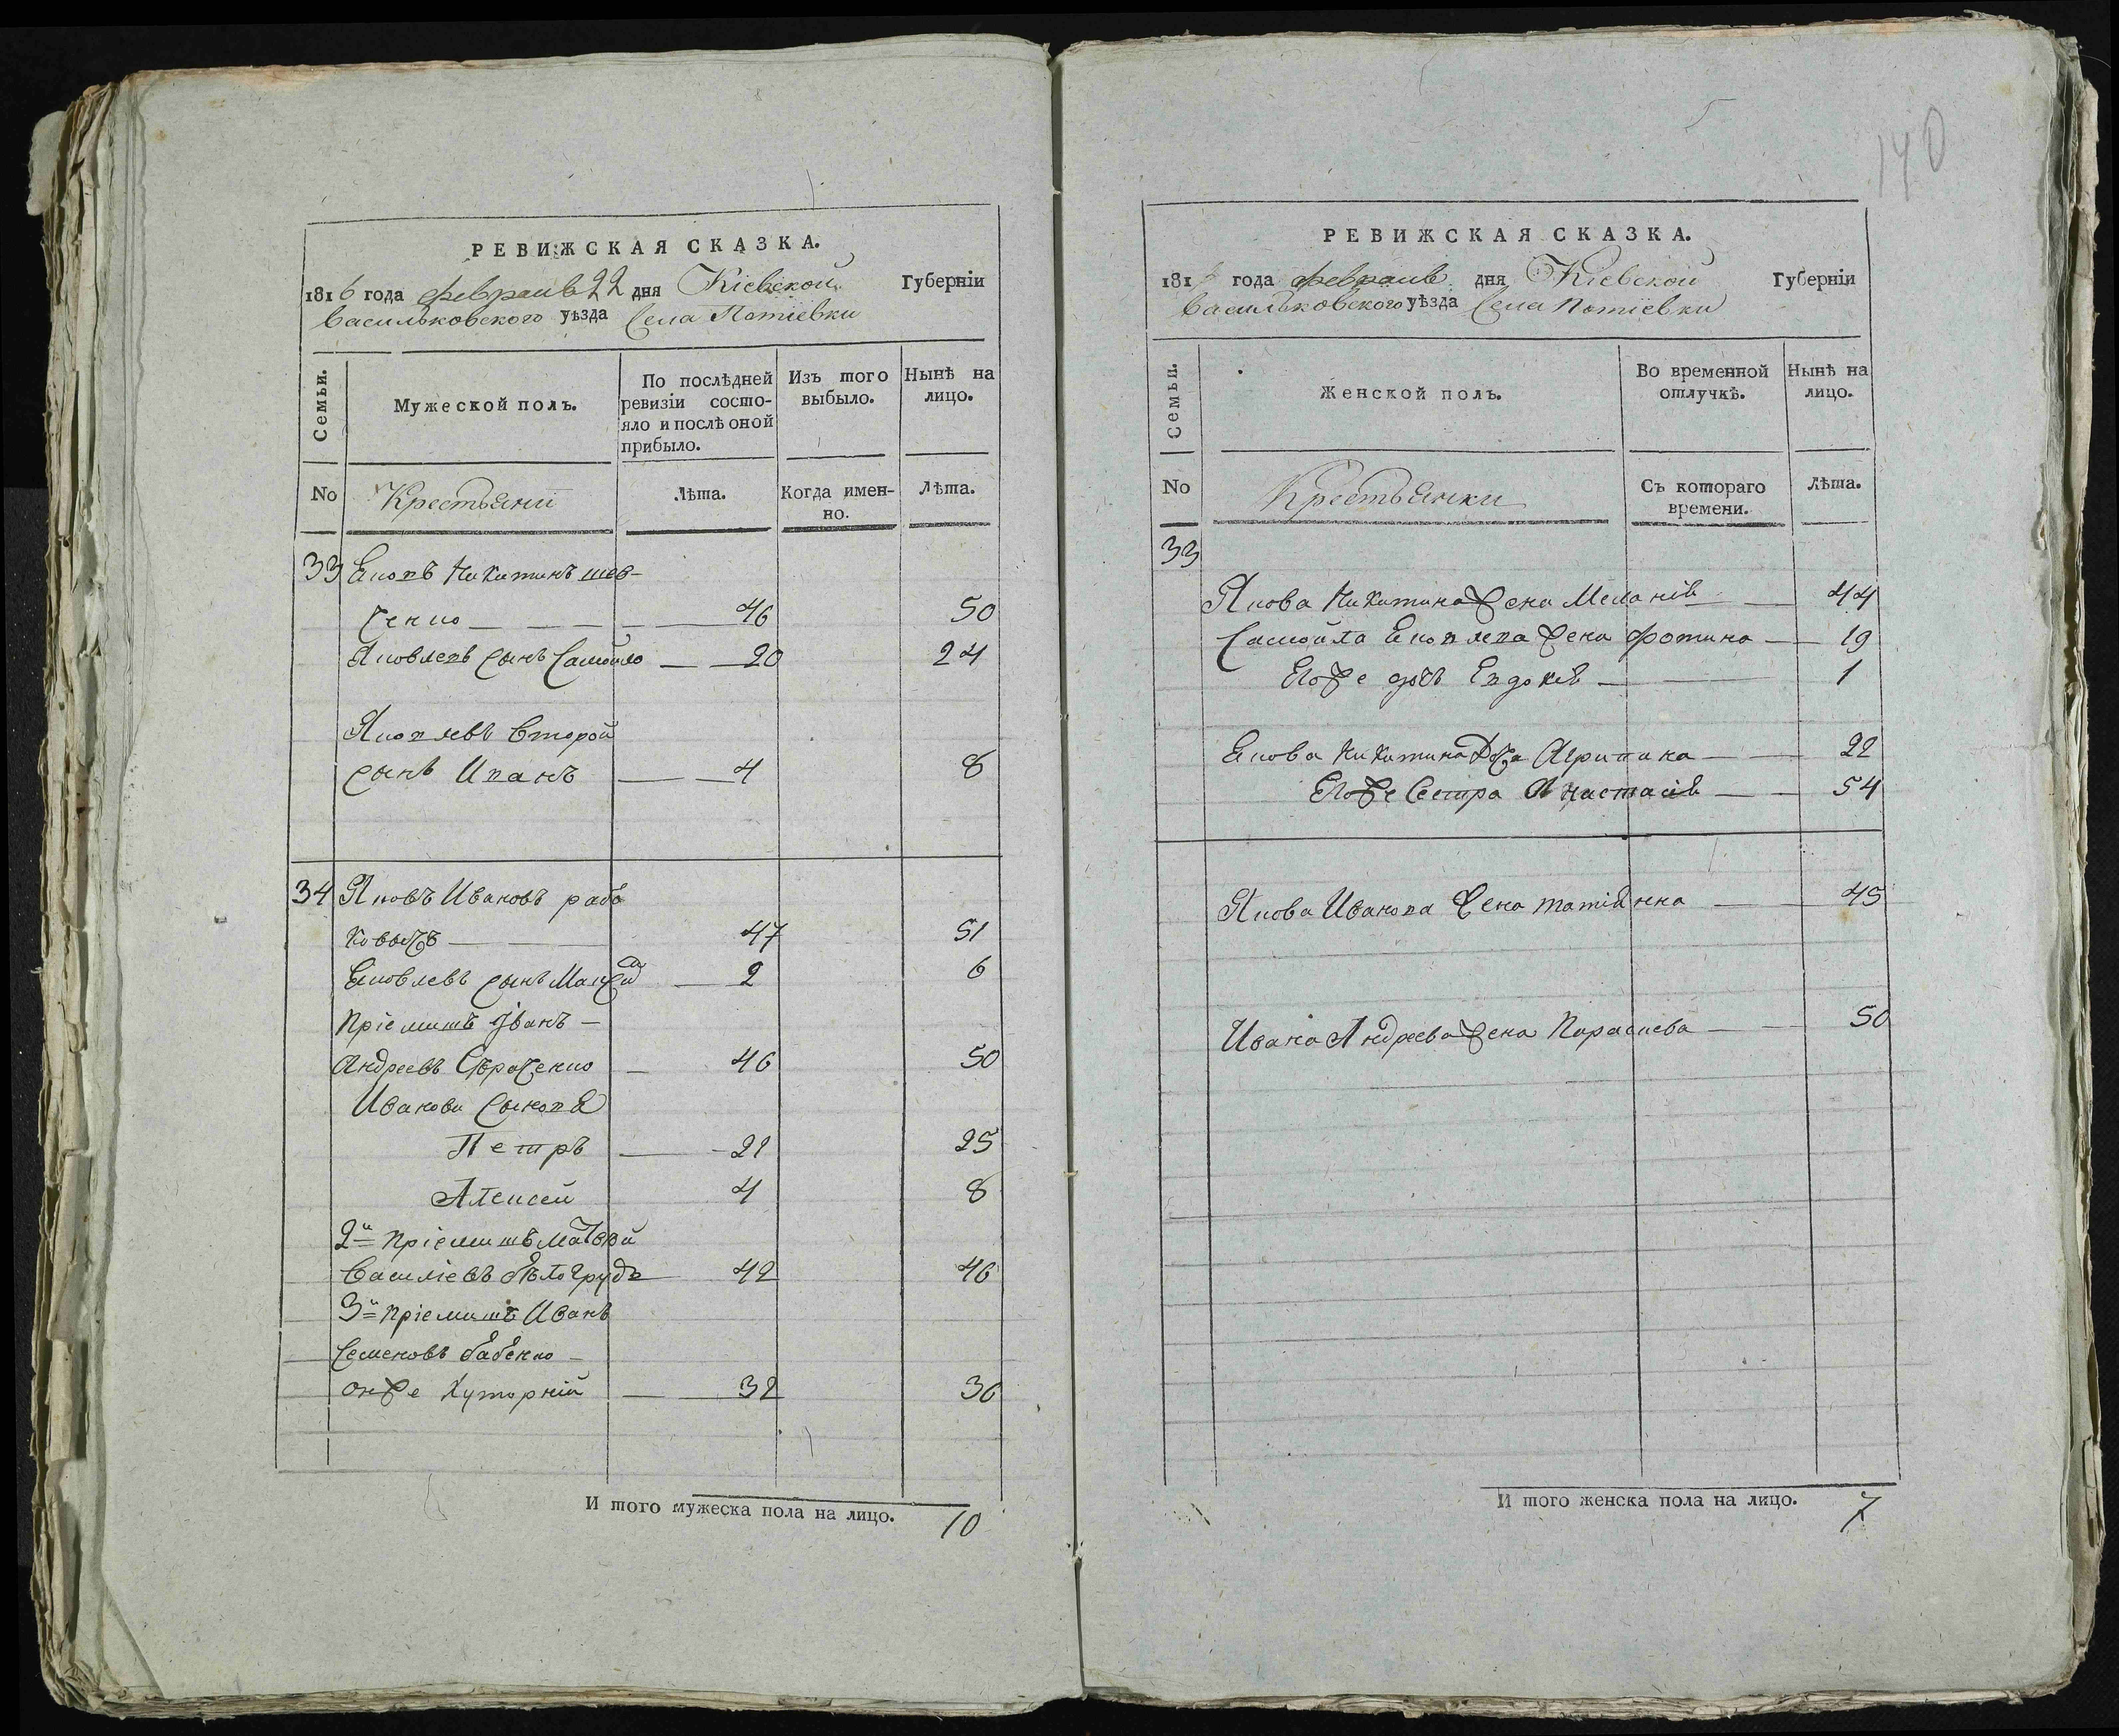 РЕВИЖСКАЯ СКАЗКА.
1816 года февраля 22 дня Кіевской Губерніи
Васильковского уѣзда Села Потіевки
Семьи.
Мужеской полъ.
По послѣдней ревизіи состояло и послѣ оной прибыло.
Изъ того выбыло.
Нынѣ на лицо.
No Крестьяни Лѣта. Когда именно. Лѣта.
33 Яковъ Никитинъ шев-
ченко 46 50
Яковлевъ сынъ Самойло 20 24
Яковлевъ второй
сынъ Иванъ 4 8
34 Яковъ Ивановъ рабо
46 51
Яковлевъ сынъ 2 6
Пріемишъ Іванъ
Андреевъ 46 50
Иванови сыновя
Петръ 21 25
Алексей 4 8
2й пріемишъ Матвей
Василіевъ бѣлогрудъ 42 46
3й пріемишъ Иванъ
Семеновъ бабенко
онже Хуторній 32 36
И того мужеска пола на лицо. 10
140
РЕВИЖСКАЯ СКАЗКА.
181 года февраля дня Кіевской Губерніи
Васильковского уѣзда Села Потіевки
Семьи.
Женской полъ.
Во временной отлучкѣ.
Нынѣ на лицо.
No Крестьянки Съ котораго времени. Лѣта.
33
Якова Никитина жена Меланія 44
Самойла Яковлева жена Фотина 19
Егоже дочь Евдокія 1
Якова Никитина Доча Агрипина 22
Егоже Сестра Анастасія 54
Якова Иванова жена татіянна 45
Ивана Андреева жена Параскева 50
И того женска пола на лицо. 7